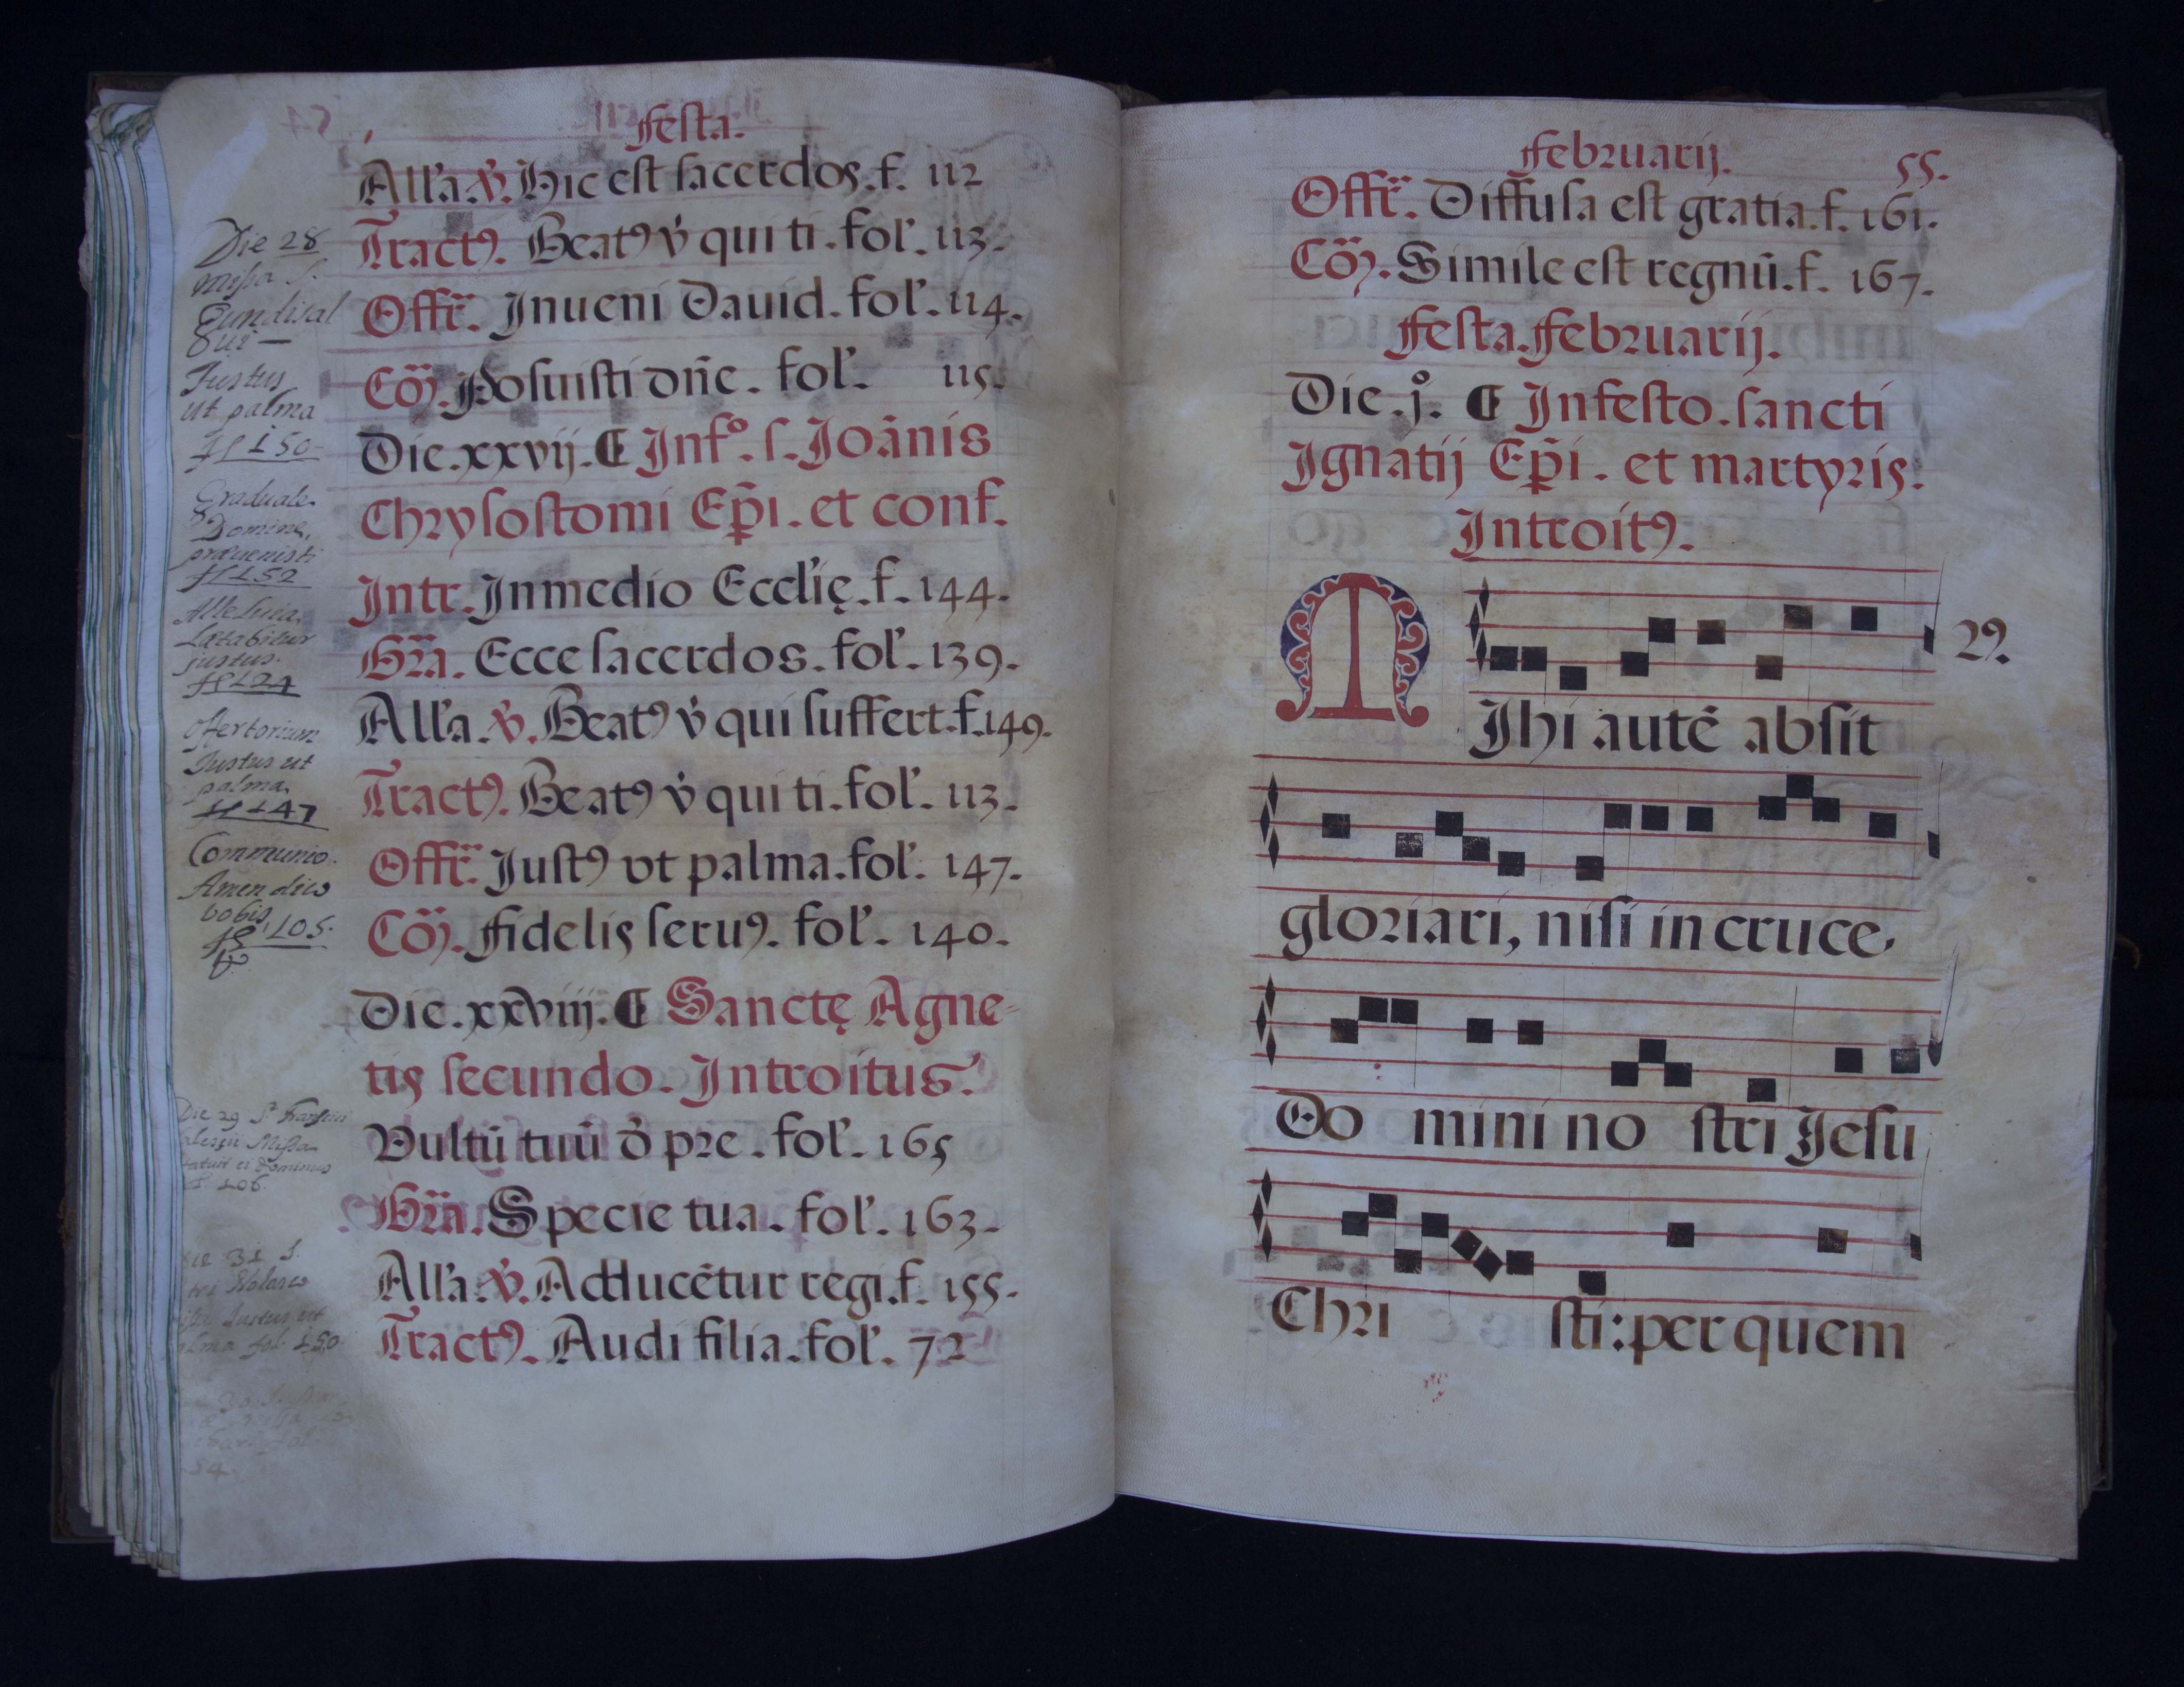 Festa.
All'a. ℣. Hic est sacerdos. f. 112
Tractꝰ. Beatꝰ v̓ qui ti. fol'. 113.
Offr̄. Inueni Dauid. fol'. 114.
Cō. Posuisti dn̄e. fol'. 115.
Die. xxvij. ¶ Inf°. s. Ioānis
Chrysostomi Ep̄i. et conf.
Intr. Inmedio Eccl'ię. f. 144.
Gr̄a. Ecce sacerdos. fol'. 139.
All'a. ℣. Beatꝰ v̓ qui suffert. f. 149.
Tractꝰ. Beatꝰ v̓ qui ti. fol'. 113.
Offr̄. Justꝰ vt palma. fol'. 147.
Cō. Fidelis seruꝰ. fol'. 140.
Die. xxviij. ¶ Sanctę Agne-
tis secundo. Introitus.
Vultū tuū ō pre. fol'. 165
Gr̄a. Specie tua. fol'. 163.
All'a. ℣. Adducētur regi. f. 155.
Tractꝰ. Audi filia. fol'. 72
Die 28
Missa S.
Gundisal
vi
Justus
ut palma
fl 150
Graduale
Domine
prævenisti
fl 152
Alleluia
Lætabitur
justus.
fl 124
Ofertorium
Justus ut
palma
fl 147
Communio.
Amen dico
bobis
105.
Die 29 S.
Missa
Dominus
106
31 S.
Justus ut
fol 150
54
Februarij. 55.
Offr̄. Diffusa est gratia. f. 161.
Cō. Simile est regnū. f. 167.
Festa. Februarij.
Die. j°. ¶ Infesto. sancti
Ignatij Ep̄i. et martyris.
Introitꝰ.
MIhi autē absit
2ꝰ.
gloriari, nisi in cruce,
Do mini no stri Jesu
Chri sti: per quem